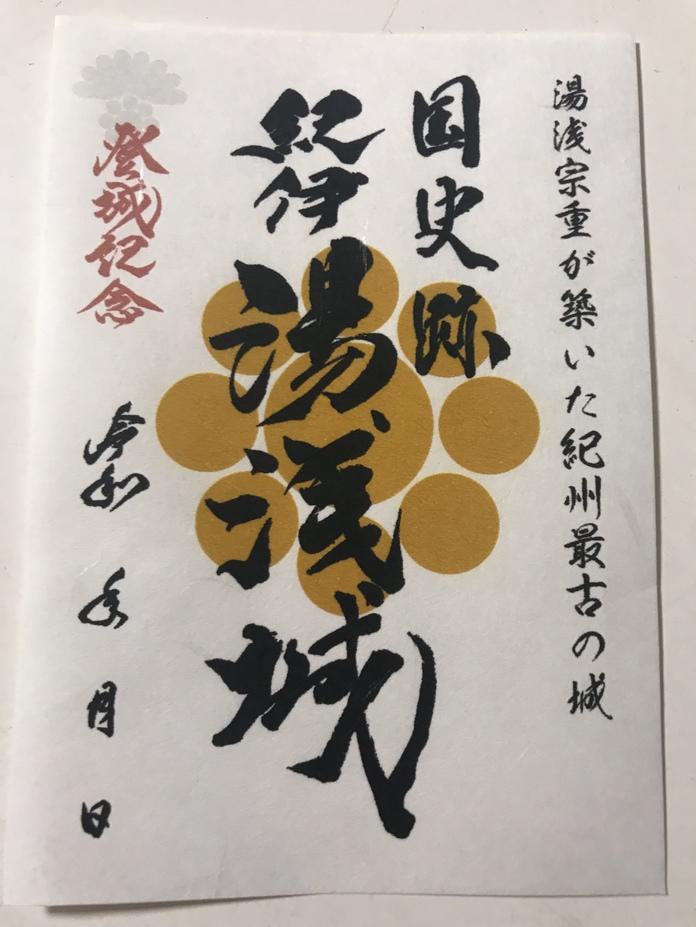 湯浅宗重が築いた紀州最古の城
国史跡
紀伊
湯浅城
登城記念
令和 年 月 日